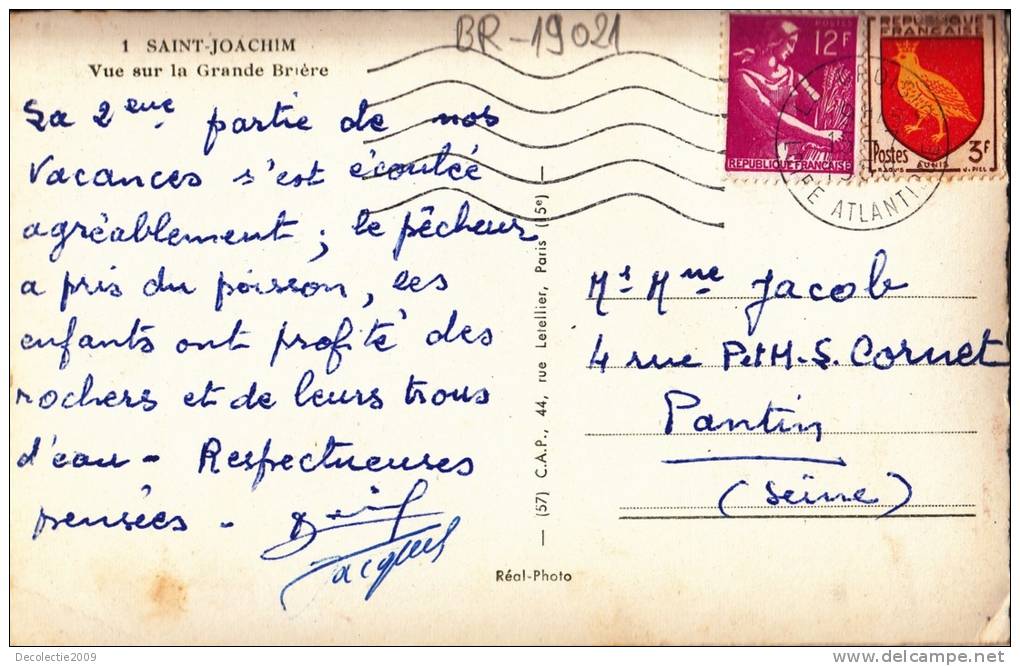 BR-19021
1 SAINT-JOACHIM
Vue sur la Grande Brière
La 2eme partie de nos
vacances s'est écoulée
agréablement ; le pêcheur
a pris du poisson, les
enfants ont profité des
rochers et de leurs trous
d'eau - Respectueuses
pensées -
Jacques
(57) C.A.P., 44, rue Letellier, Paris (15e)
Réal-Photo
POSTES
12F
REPUBLIQUE FRANÇAISE
REPUBLIQUE
FRANÇAISE
Postes
3F
AUNIS
ATLANTI
Mr Mme Jacob
4 rue Pet M.S. Cornet
Pantin
(Seine)
Decolectie2009
www.delcampe.net